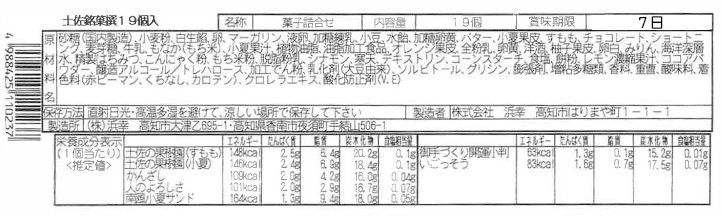 土佐銘菓撰19個入
名称 菓子詰合せ 内容量 19個 賞味期限 7日
原材料名
砂糖(国内製造)、小麦粉、白生餡、卵、マーガリン、液卵、加糖練乳、小豆、水飴、加糖卵黄、バター、小夏果皮、すもも、チョコレート、ショートニング、麦芽糖、牛乳、もなか(もち米)、小夏果汁、植物油脂、油脂加工食品、オレンジ果皮、全粉乳、卵黄、洋酒、柚子果皮、卵白、みりん、海洋深層水、精製はちみつ、こんにゃく粉、もち米粉、脱脂粉乳、シナモン、寒天、デキストリン、コーンスターチ、食塩、餅粉、レモン濃縮果汁、ココアパウダー、醸造アルコール/トレハロース、加工でん粉、乳化剤(大豆由来)、ソルビトール、グリシン、膨張剤、増粘多糖類、香料、重曹、酸味料、着色料(赤ビーマン、くちなし、カロテン)、クロレラエキス、酸化防止剤(V.E)
保存方法 直射日光・高温多湿を避けて、涼しい場所で保存して下さい 製造者 株式会社 浜幸 高知市はりまや町1-1-1
製造所 (株)浜幸 高知市大津乙695-1・高知県香南市夜須町手結山506-1
栄養成分表示
(1個当たり)
<推定値>
エネルギー たんぱく質 脂質 炭水化物 食塩相当量
土佐の果樹園(すもも) 146kcal 2.5g 6.4g 20.2g 0.1g
土佐の果樹園(小夏) 146kcal 2.4g 6.9g 18.4g 0.1g
かんざし 109kcal 2.0g 4.2g 16.0g 0.04g
人のよろしさ 101kcal 2.0g 2.9g 16.7g 0.07g
南国小夏サンド 164kcal 1.3g 9.4g 18.0g 0.05g
エネルギー たんぱく質 脂質 炭水化物 食塩相当量
御手づくり開運小判 63kcal 1.3g 0.1g 15.2g 0.01g
いごっそう 83kcal 1.6g 0.7g 17.5g 0.07g
4 988425 110237